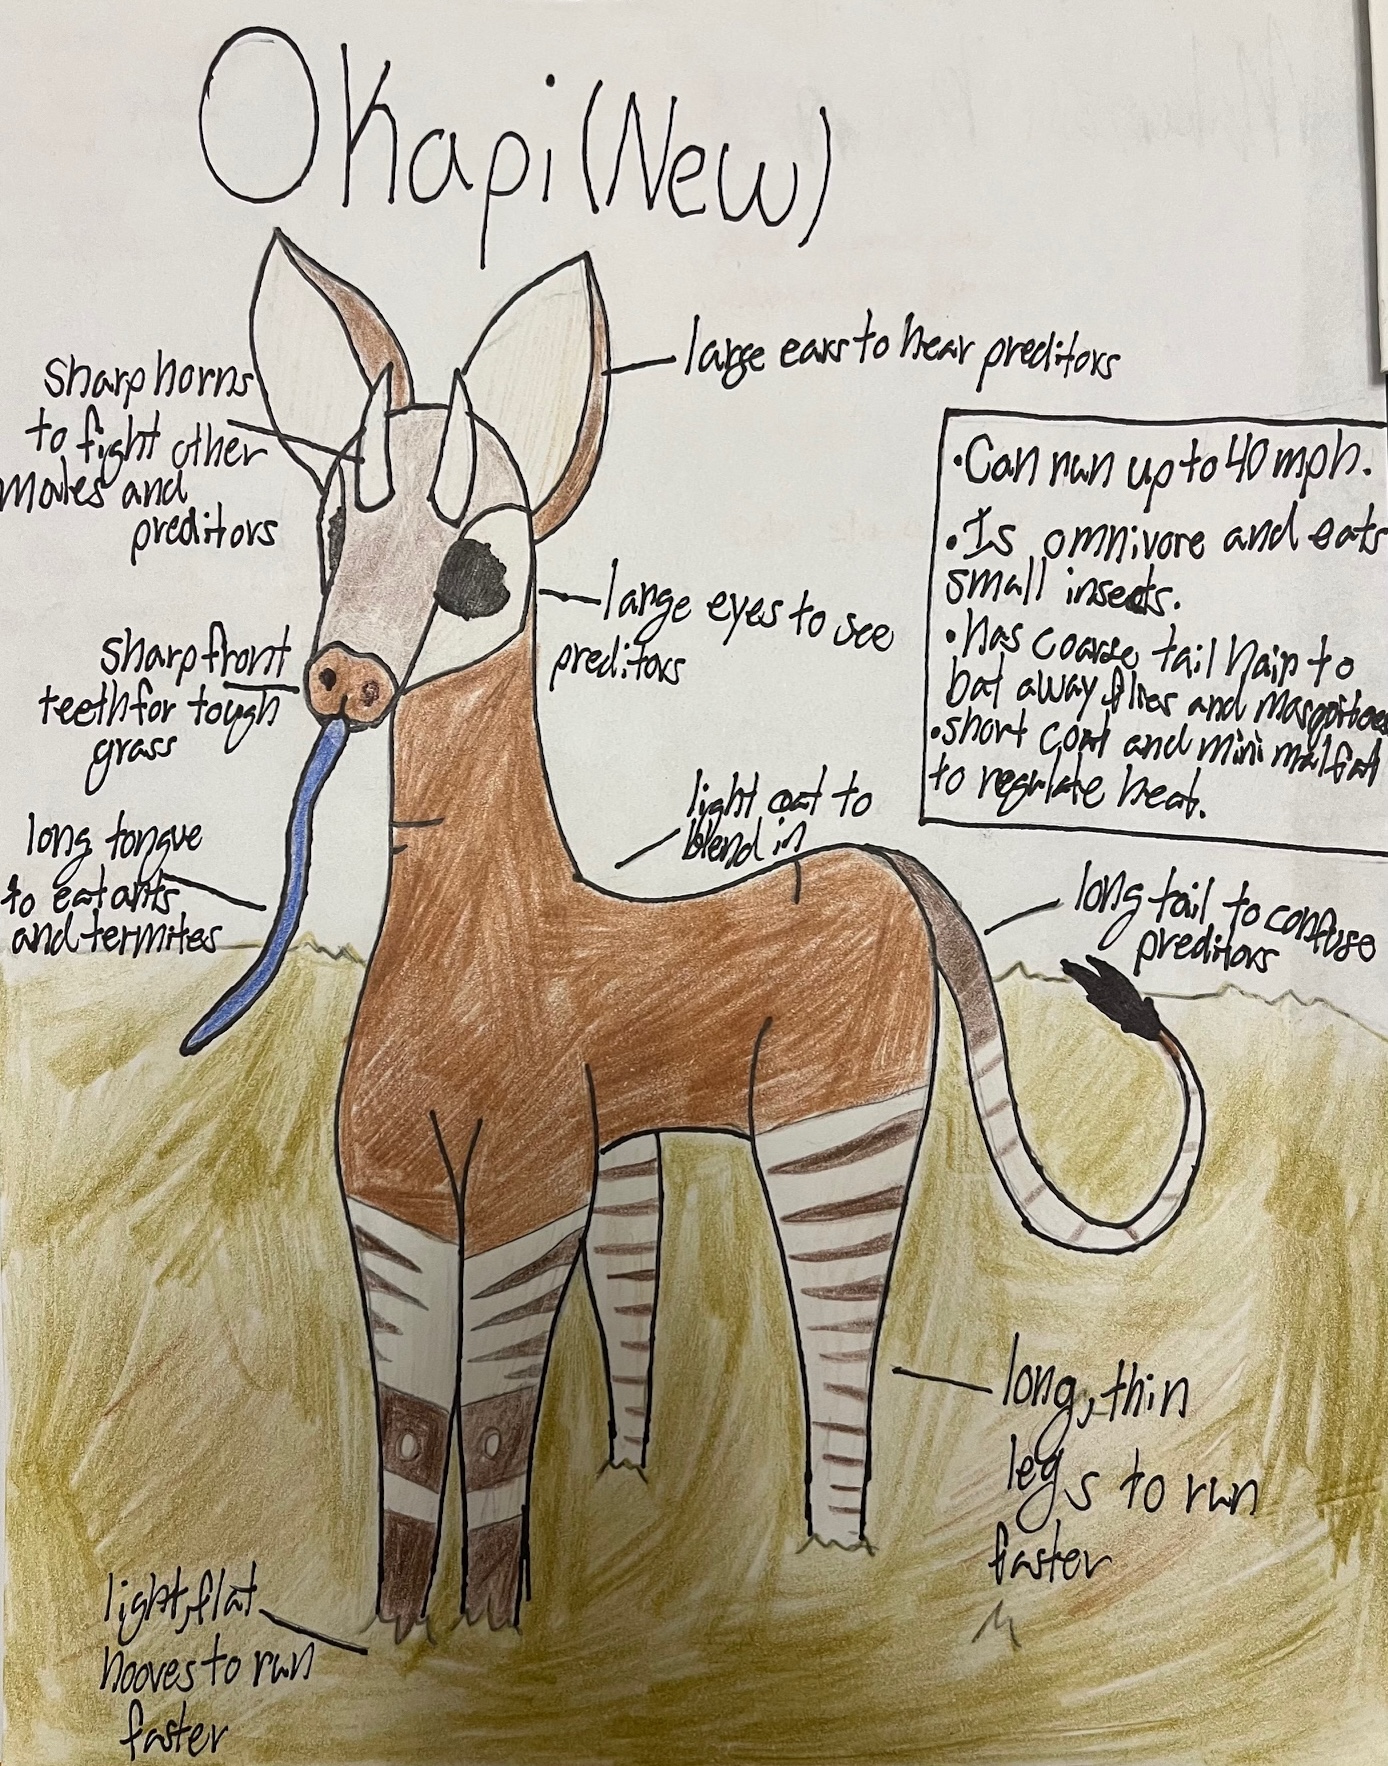 Okapi (New)
large ears to hear preditors
sharp horns
to fight other
males and
preditors
large eyes to see
preditors
sharp front
teeth for tough
grass
•Can run up to 40 mph.
•Is omnivore and eats
small insects.
•has coarse tail hair to
bat away flies and
•short coat and minimal fat
to regulate heat.
light coat to
blend in
long tongue
to eat ants
and termites
long tail to confuse
preditors
long, thin
legs to run
faster
light, flat
hooves to run
faster